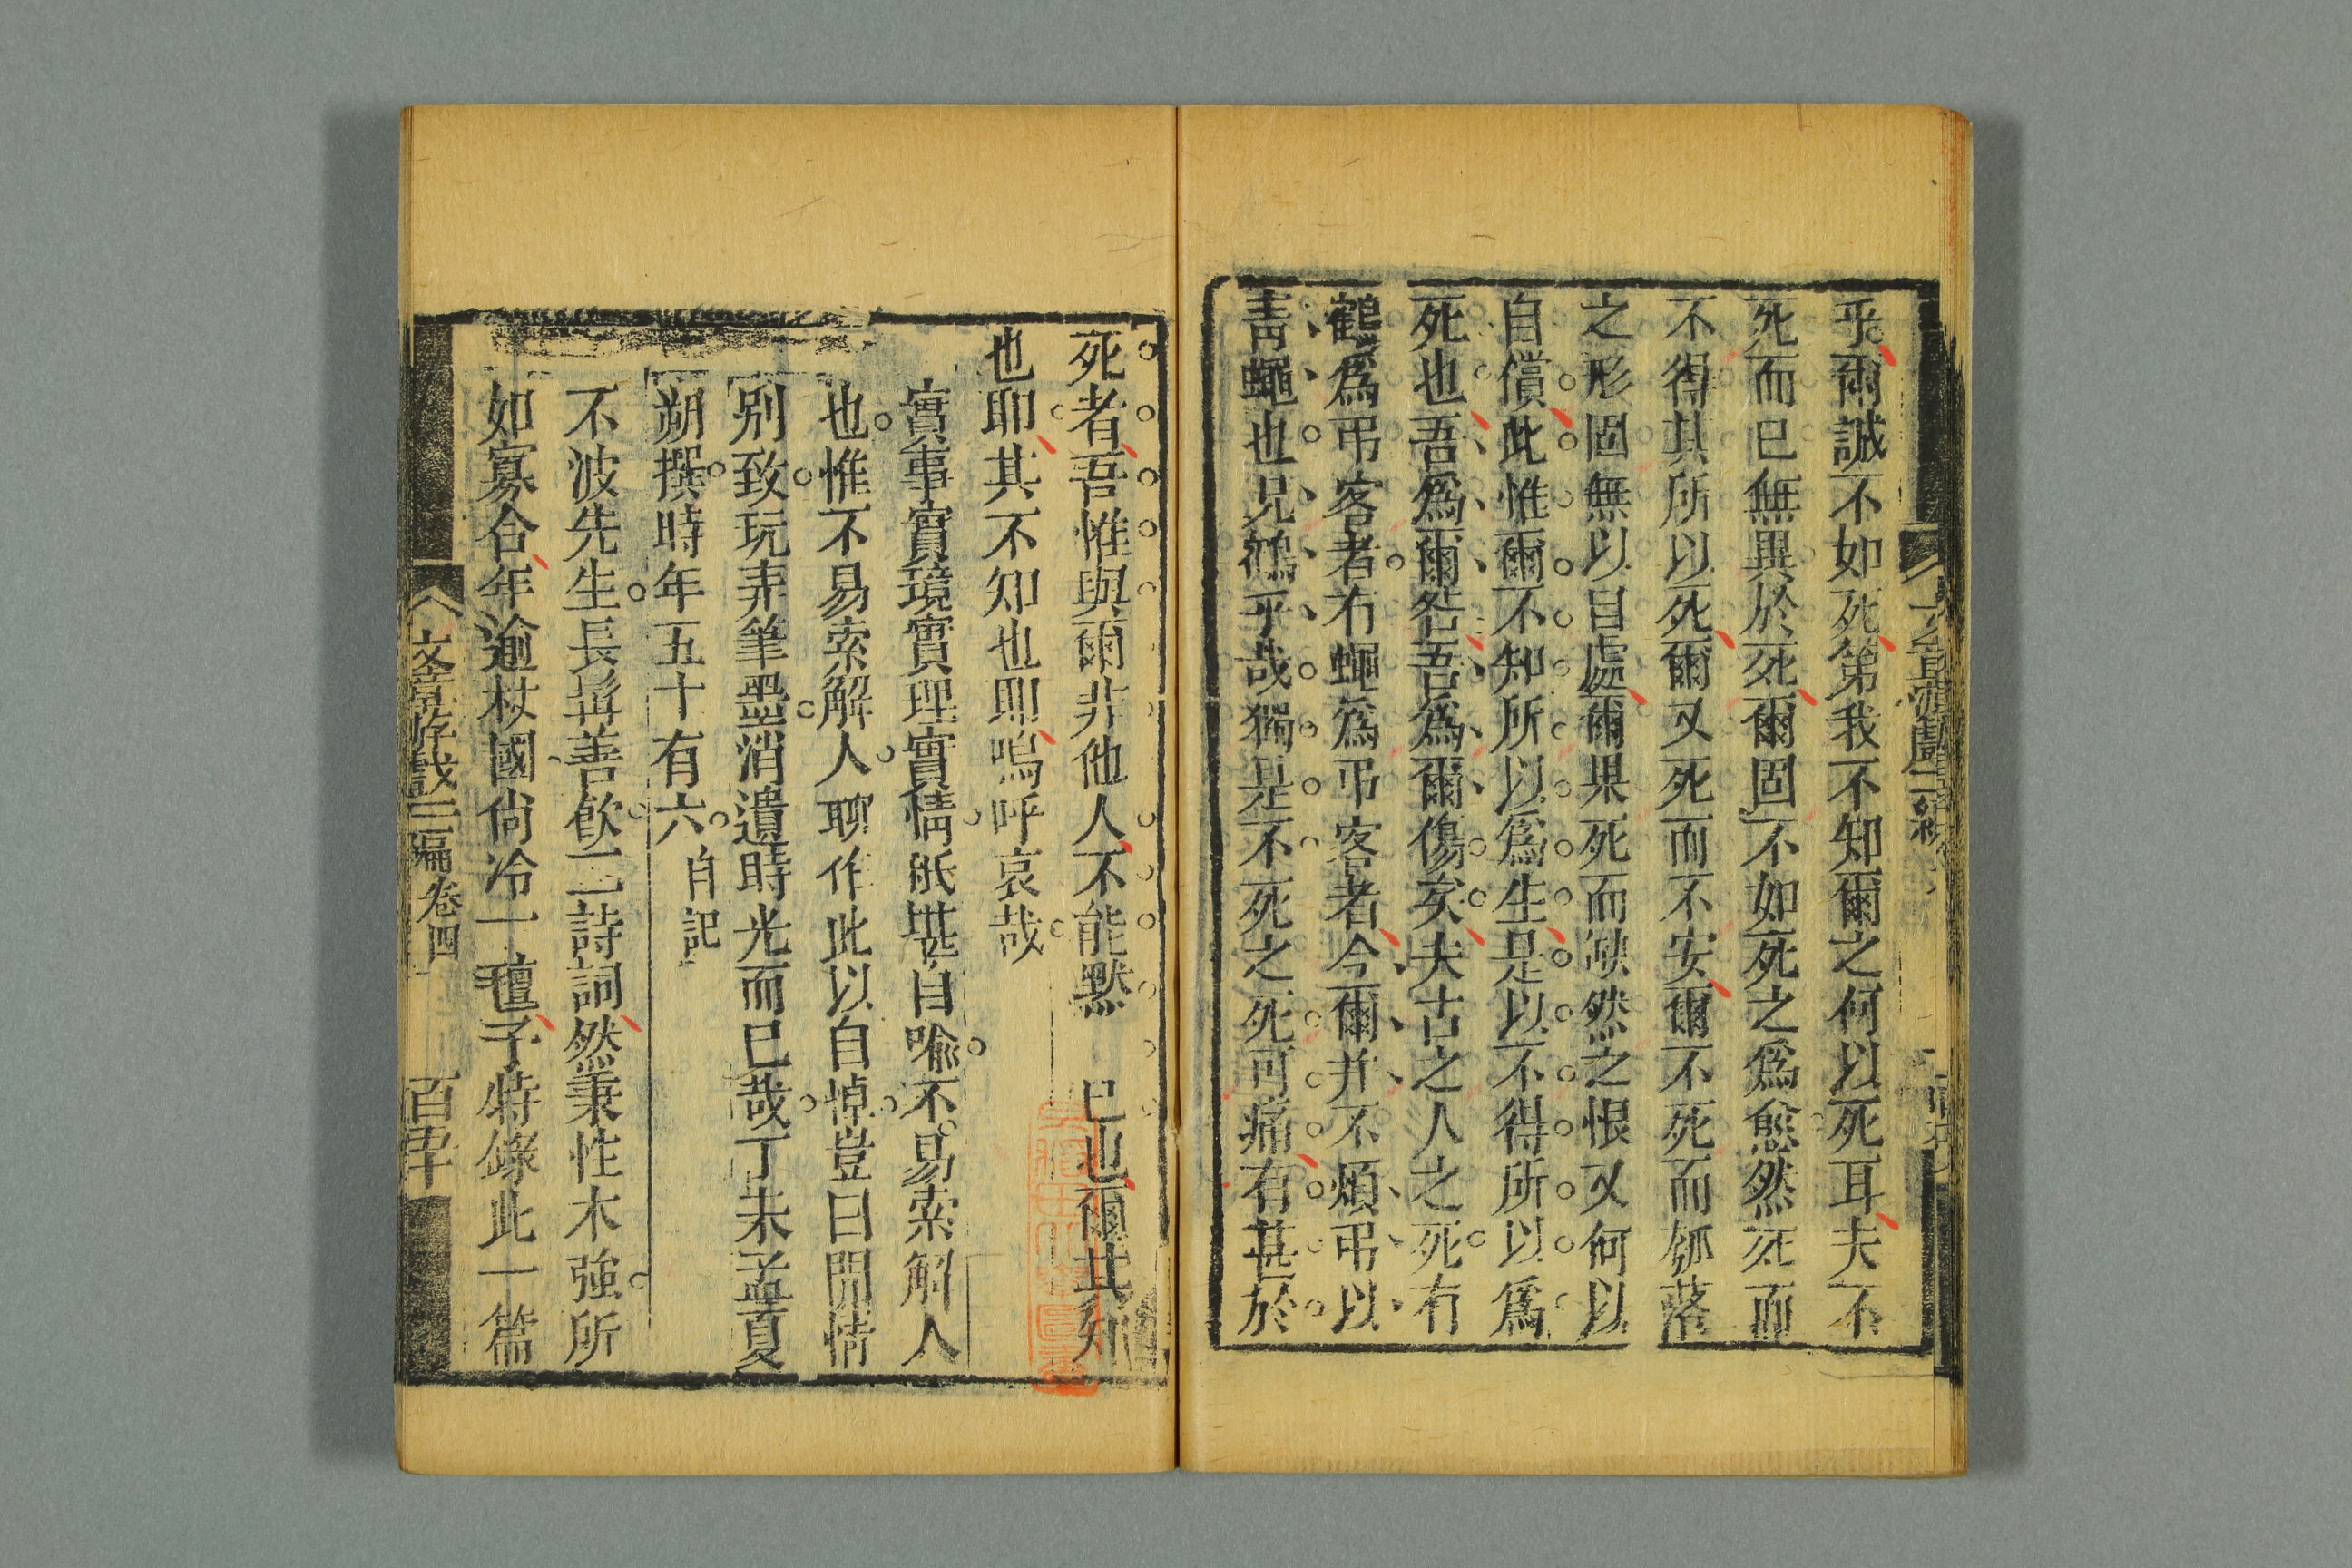 乎爾誠不如死第我不知爾之何以死耳夫不
死而已無異於死爾固不如死之為愈然死而
不得其所以死爾又死而不安爾不死而瓠落
之形固無以自處爾果死而缺然之恨又何以
自償此惟爾不知所以為生是以不得所以為
死也吾為爾咎吾為爾傷矣夫古之人之死有
鶴為弔客者有蠅為弔客者今爾并不煩弔以
靑蠅也兄鶴乎哉獨是不死之死可痛有甚於
死者吾惟與爾非他人不能默 已也爾其知
也耶其不知也耶嗚呼哀哉
實事實境實理實情祇堪自喻不易索解人
也惟不易索解人聊作此以自悼豈曰閒情
別致玩弄筆墨消遺時光而已哉丁未孟夏
朔撰時年五十有六 自記
不波先生長髯善飲工詩詞然秉性木強所
如寡合年逾杖國尙冷一氊予特錄此一篇
文章游戲三編卷四